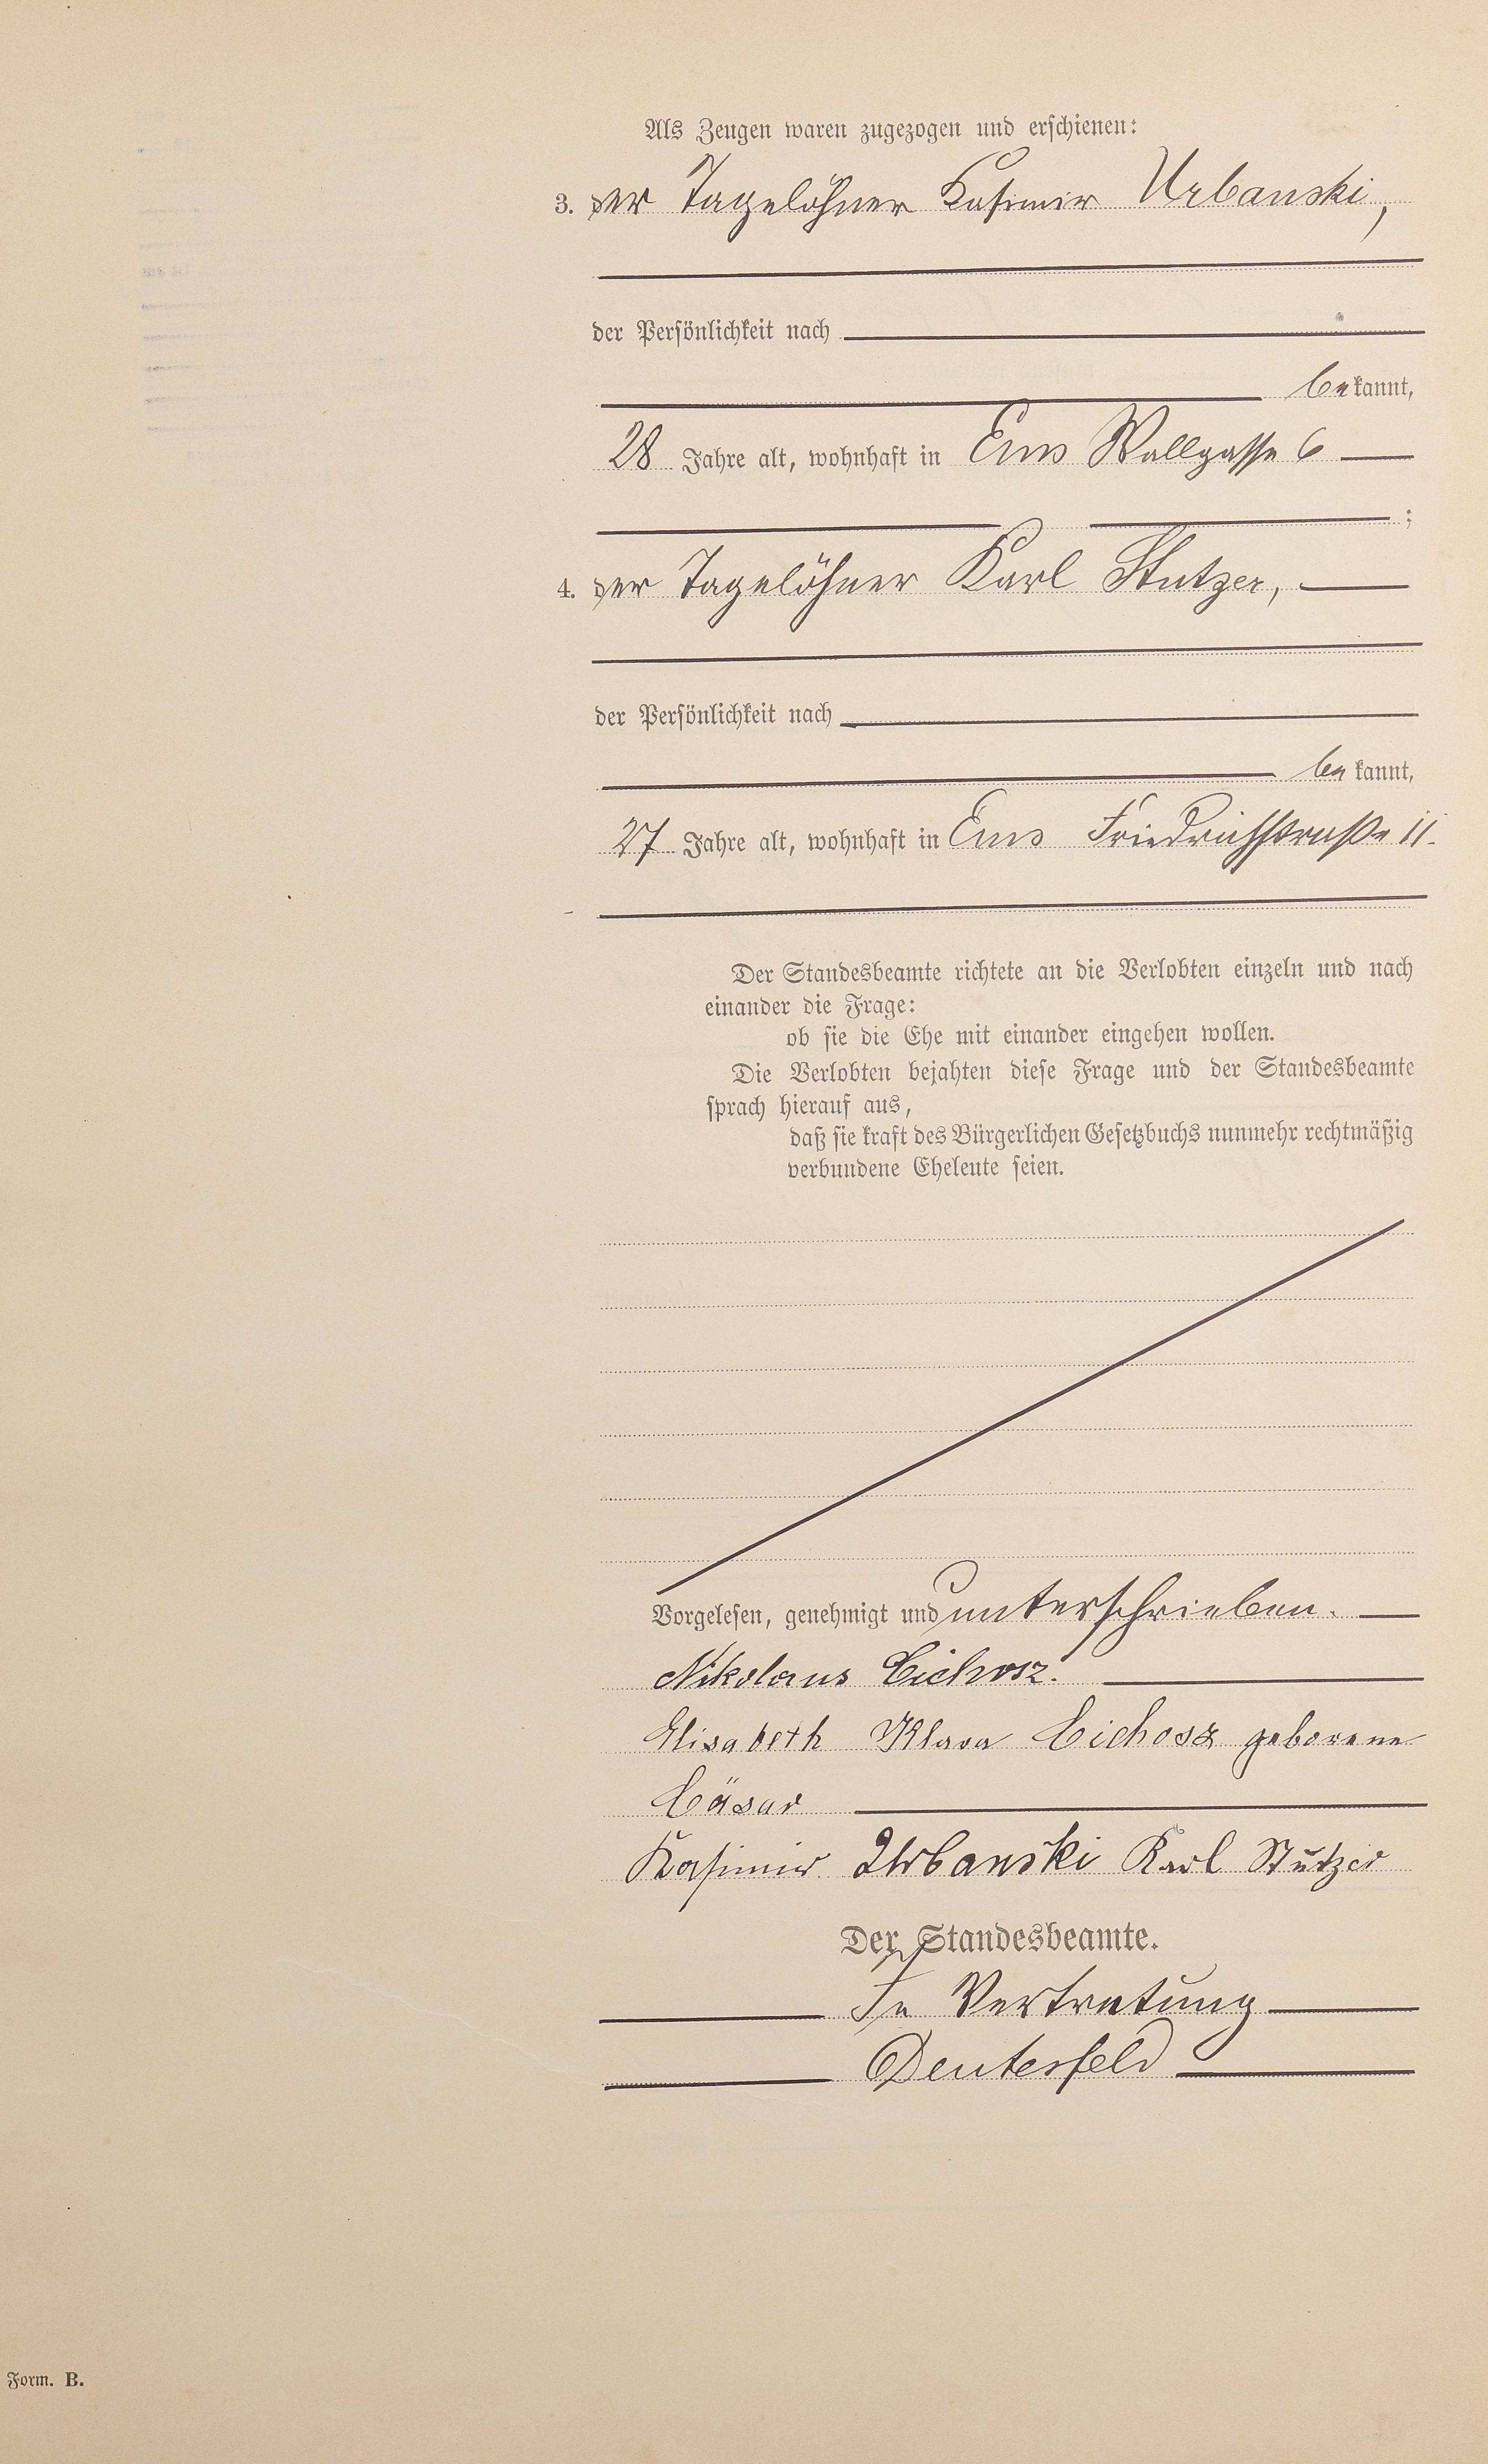 Als Zeugen waren zugezogen und erschienen:
3. der Tagelöhner Kasimir Urbanski,
der Persönlichkeit nach
bekannt,
28 Jahre alt, wohnhaft in Ems Wallgasse 6
;
4. der Tagelöhner Karl Stutzer,
der Persönlichkeit nach
bekannt,
27 Jahre alt, wohnhaft in Ems Friedrichstraße 11.
Der Standesbeamte richtete an die Verlobten einzeln und nach
einander die Frage:
ob sie die Ehe mit einander eingehen wollen.
Die Verlobten bejahten diese Frage und der Standesbeamte
sprach hierauf aus,
daß sie kraft des Bürgerlichen Gesetzbuchs nunmehr rechtmäßig
verbundene Eheleute seien.
Vorgelesen, genehmigt und unterschrieben.
Nikolaus Cichosz.
Elisabeth Klara Cichosz geborene
Cäsar
Kasimir Urbanski Karl Stutzer
Der Standesbeamte.
In Vertretung
Deutesfeld
Form. B.